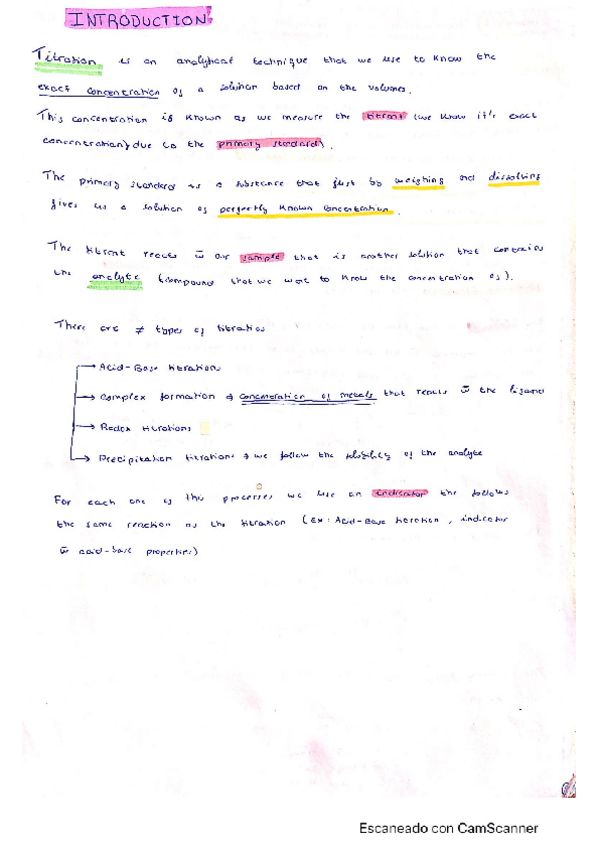 INTRODUCTION
Titration is an analytical technique that we use to know the
exact concentration of a solution based on the volumes.
This concentration is known as we measure the titrant (we know it's exact
concentration) due to the primary standard.
The primary standard is a substance that just by weighing and dissolving
gives us a solution of perfectly known concentration.
The titrant reacts w̄ our sample that is another solution that contains
the analyte (compound that we want to know the concentration of).
There are ≠ types of titration
→ Acid-Base titrations
→ Complex formation → concentration of metals that reacts w̄ the ligand
→ Redox titrations
→ Precipitation titrations → we follow the solubility of the analyte
For each one of this processes we use an indicator the follows
the same reaction as the titration (Ex: Acid-Base titration, indicator
w̄ acid-base properties)
Escaneado con CamScanner